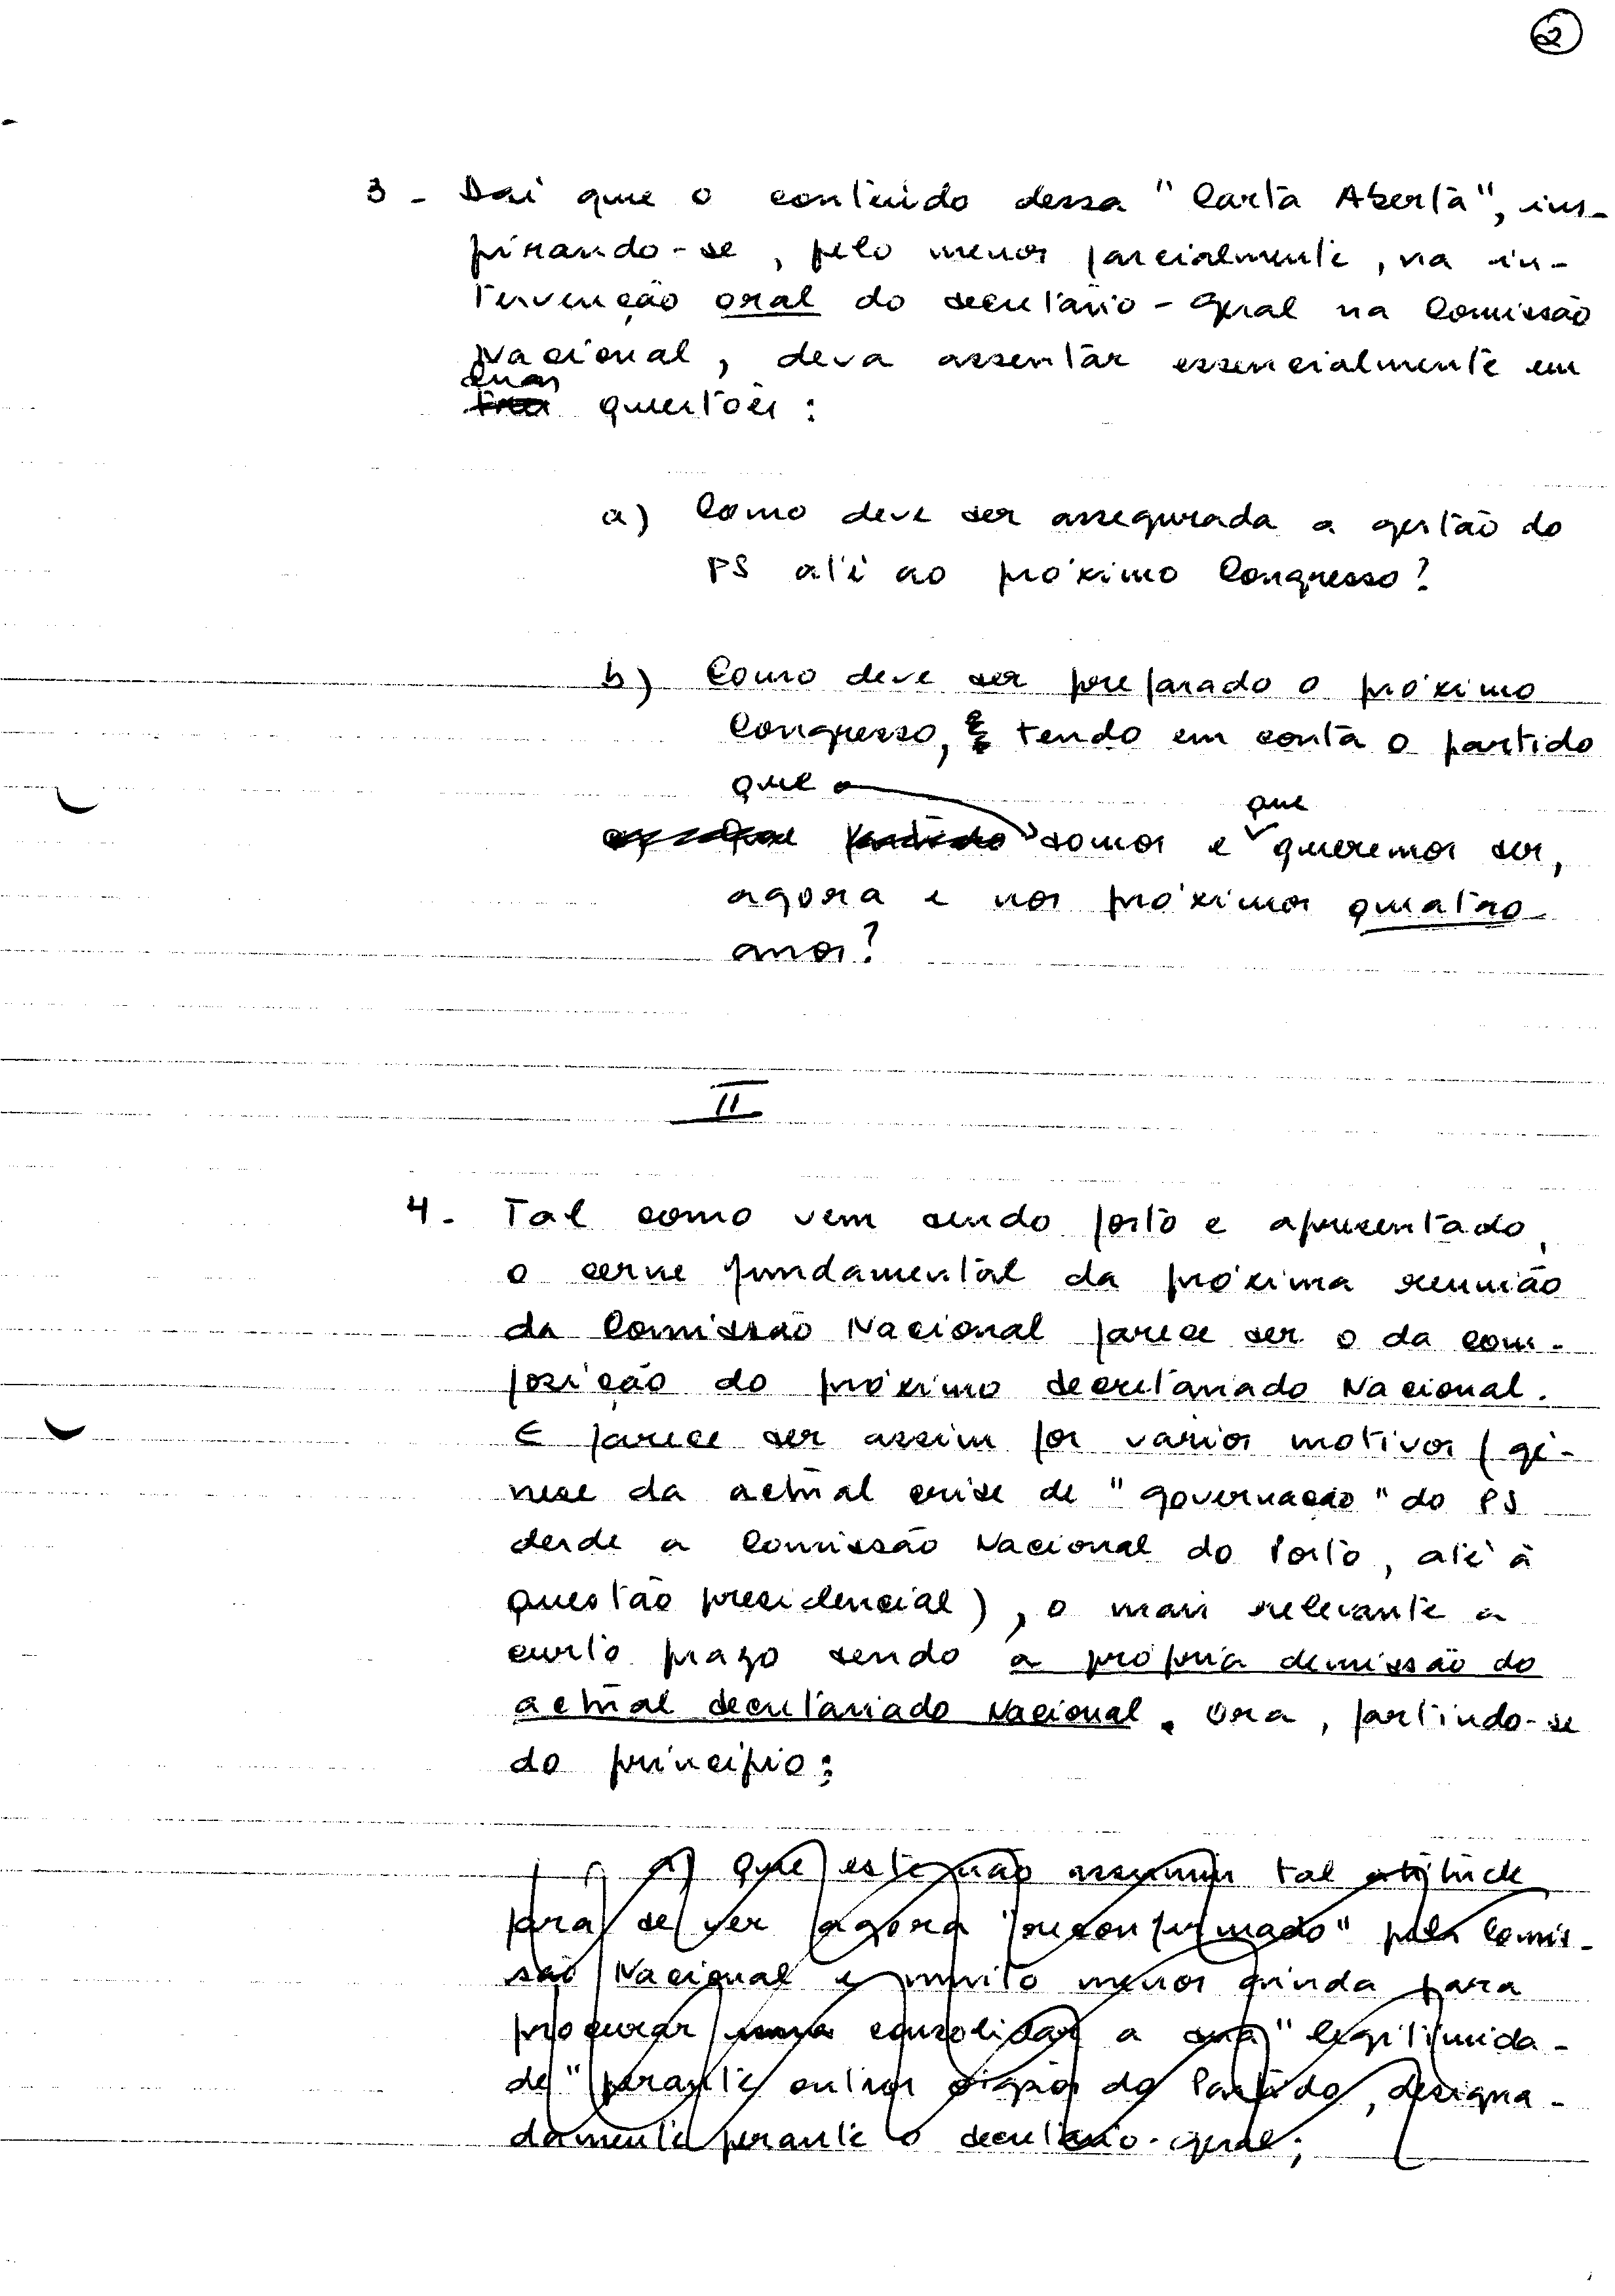 2
3 - Daí que o conteúdo dessa "Carta Aberta", ins-
pirando-se, pelo menos parcialmente, na in-
tervenção oral do secretário-Geral na Comissão
Nacional, deva assentar essencialmente em
duas
três questões:
a) Como deve ser assegurada a gestão do
PS até ao próximo Congresso?
b) Como deve ser preparado o próximo
Congresso, tendo em conta o partido
que
que
que partido somos e queremos ser,
agora e nos próximos quatro
anos?
II
4. Tal como vem sendo posto e apresentado,
o cerne fundamental da próxima reunião
da Comissão Nacional parece ser o da com-
posição do próximo secretariado Nacional.
E parece ser assim por vários motivos (gé-
nese da actual crise de "governação" do PS
desde a Comissão Nacional do Porto, até à
questão presidencial), o mais relevante a
curto prazo sendo a própria demissão do
actual secretariado Nacional. Ora, partindo-se
do princípio:
a) que este não assumiu tal atitude
para se ver agora "reconfirmado" pela Comis-
são Nacional e muito menos ainda para
procurar consolidar a sua "legitimida-
de" perante outros órgãos do Partido, designa-
damente perante o secretário-geral;